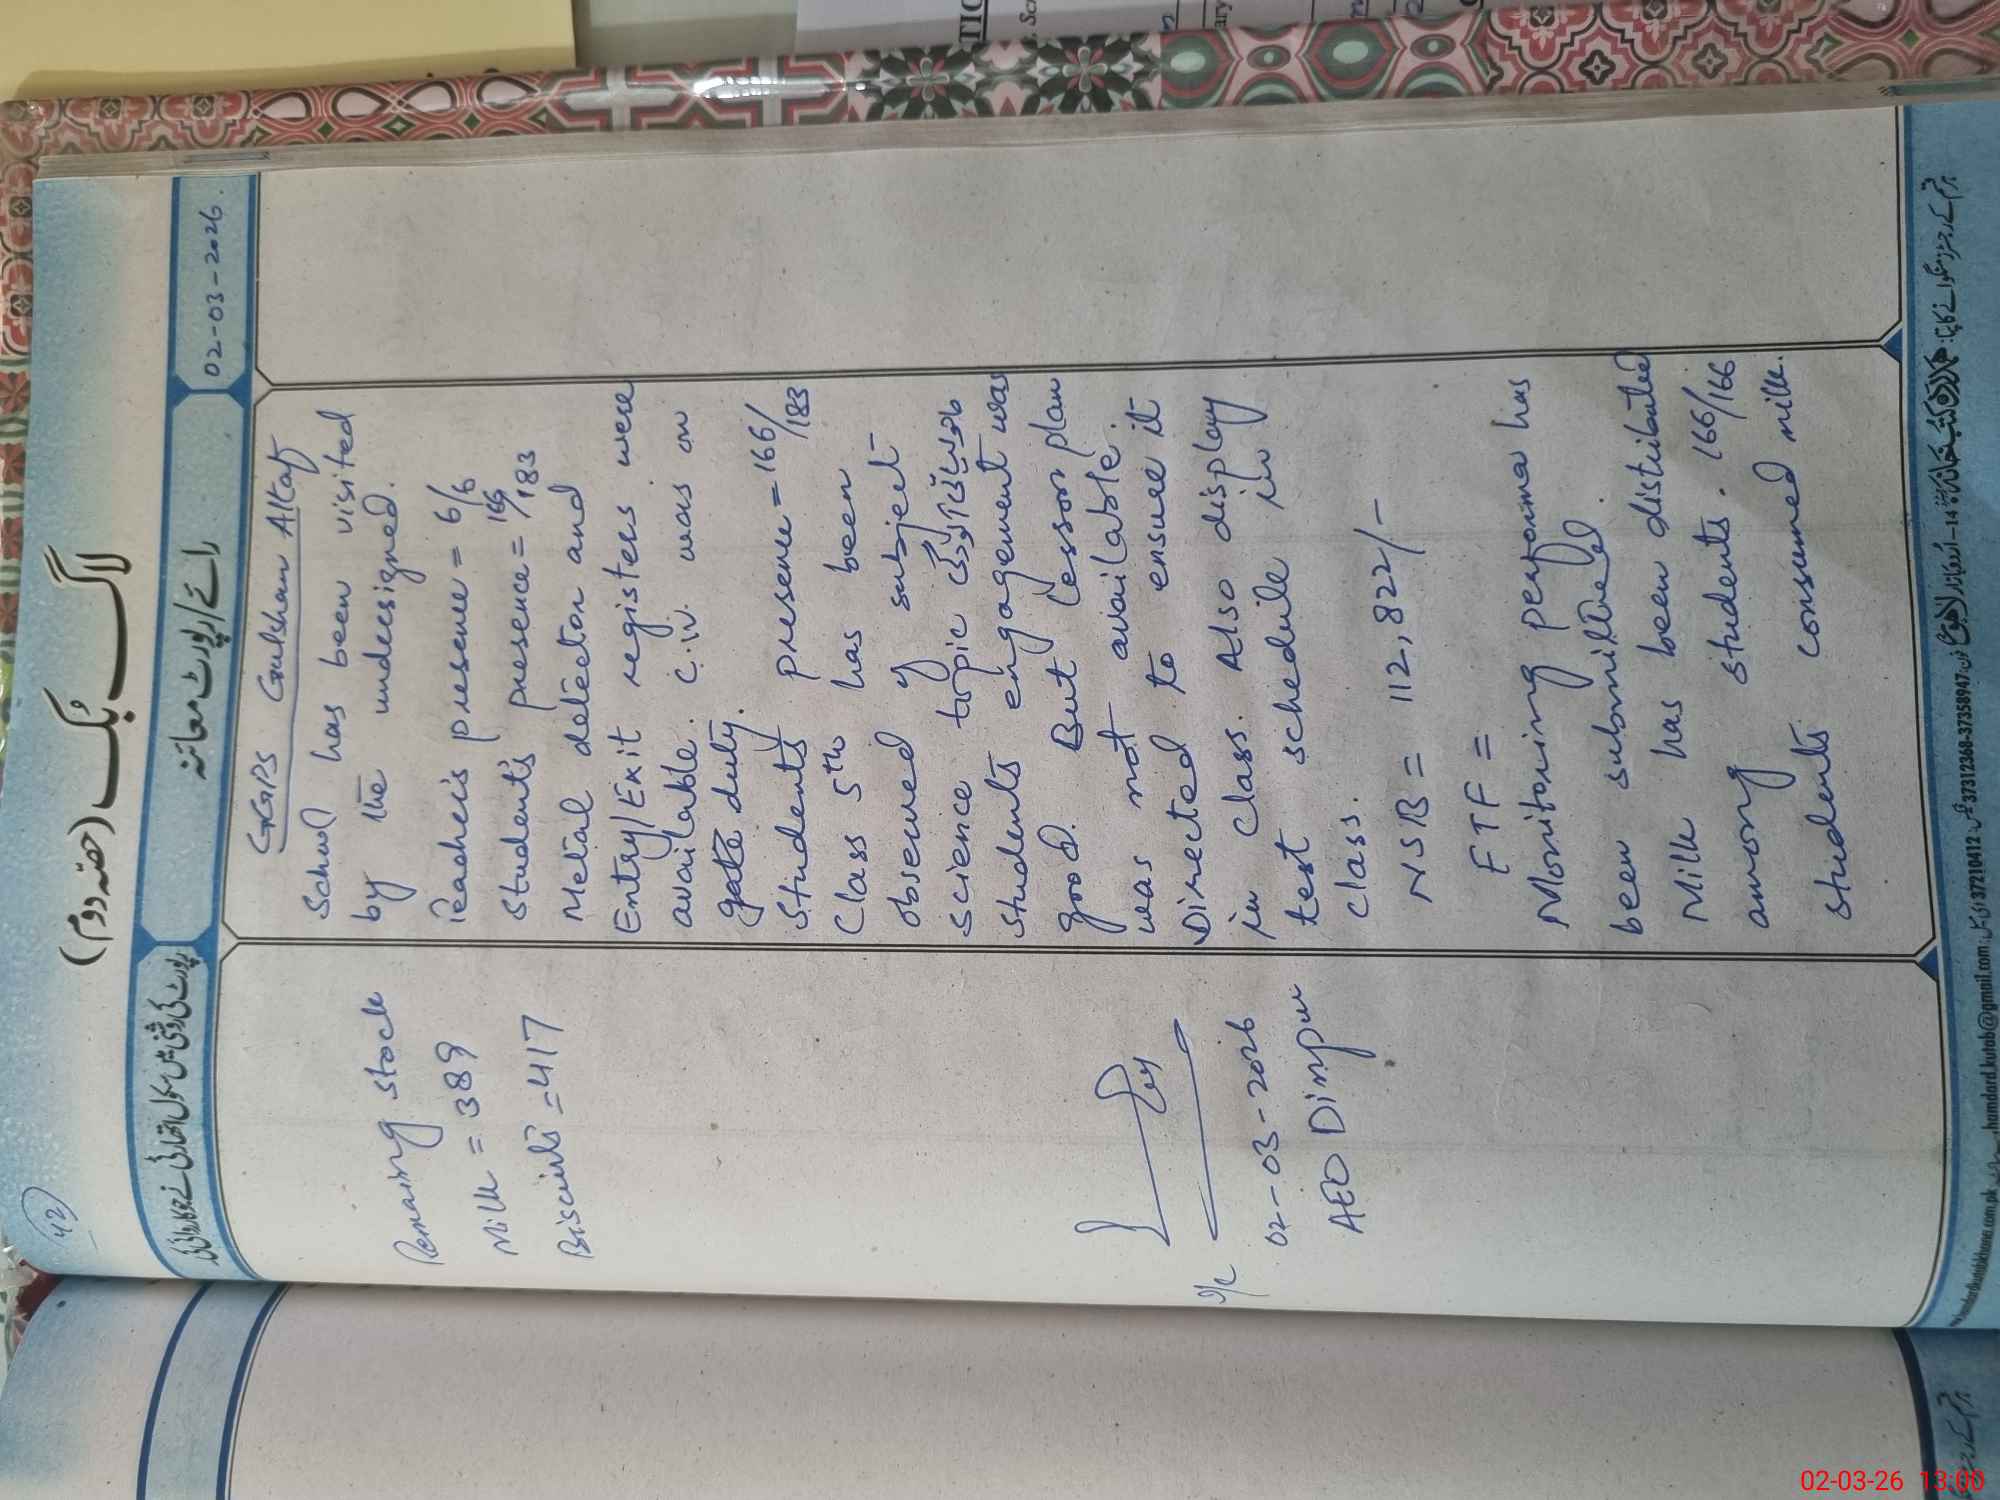 42
لاگ بُک (حصہ دوم)
رائے/رپورٹ معائنہ
02-03-2026
رپورٹ کی روشنی میں سکول اتھارٹی نے جو کاروائی کی
GGPS Gulshan Altaf
School has been visited
by the undersigned.
Teacher's presence = 6/6
Student's presence = 166/183
Metal detector and
Entry/Exit registers were
available. C.IV. was on
gate duty.
Students presence = 166/183
Class 5th has been
observed of subject
science topic
students engagement was
good. But Lesson plan
was not available.
Directed to ensure it
in class. Also display
test schedule in
class.
NSB = 112,822/-
FTF =
Monitoring performa has
been submitted.
Milk has been distributed
among students. 166/166
students consumed milk.
Remaing stock
Milk = 389
Biscuits = 417
02-03-2026
AEO Dinpur
humdard.kutab@gmail.com
37210412
37312368-37358947
02-03-26 13:00